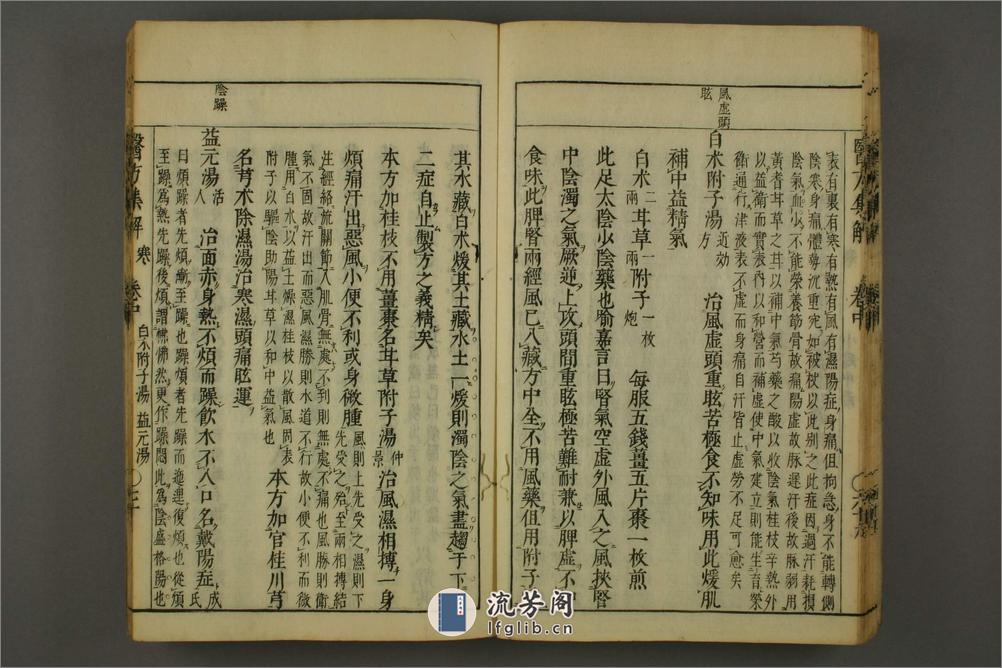 表有裏有寒有熱有風有濕陽症身痛但拘急身不能轉側
陰寒身痛體勢沉重宛如被杖以此別之此症因過汗耗損
陰氣血少不能榮養筋骨故痛陽虛故脉遲汗後故脉弱用
黃耆甘草之甘以補中氣芍藥之酸以收陰氣桂枝辛熱外
以益衛而實表內以和營而補虛使中氣建立則能生育榮
衛通行津液表不虛而身痛自汗皆止虛勞不足可愈矣
風虛頭
眩
白术附子湯 近効方 治風虛頭重眩苦極食不知味用此煖肌
補中益精氣
白术二兩 甘草一兩 附子一枚炮 每服五錢薑五片棗一枚煎
此足太陰少陰藥也喻嘉言曰腎氣空虛外風入之風挾腎
中陰濁之氣厥逆上攻頭間重眩極苦難耐兼以脾虛不
食味此脾腎兩經風已入藏方中全不用風藥但用附子
醫方集解 卷中
其水藏白术煖其土藏水土一煖則濁陰之氣盡趨于下
二症自止製方之義精矣
本方加桂枝不用薑棗名甘草附子湯 仲景 治風濕相搏一身
煩痛汗出惡風小便不利或身微腫 風則上先受之濕則下先受之殆至兩相搏結
注經絡流關節入肌骨無處不到則無處不痛也風勝則衛
氣不固故汗出而惡風濕勝則水道不行故小便不利而微
腫用白术以益土燥濕桂枝以散風固表
附子以驅陰助陽甘草以和中益氣也 本方加官桂川芎
名芎术除濕湯治寒濕頭痛眩運
陰躁
益元湯 活人 治面赤身熱不煩而躁飲水不入口名戴陽症 成氏
曰煩躁者先煩漸至躁也躁煩者先躁而迤邐復煩也從煩
至躁爲熱先躁後煩謂怫怫然更作躁悶此爲陰盛格陽也
醫方集解 寒 卷中 白术附子湯 益元湯
流芳阁
lfglib.cn